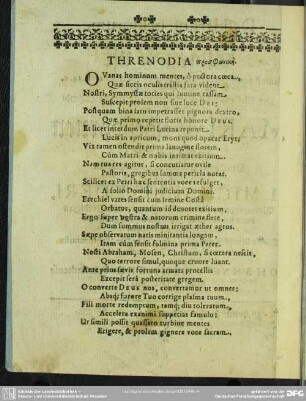 THRENODIA προσφωνική.
O Vanas hominum mentes, ô pectora cæca,
Quæ siccis oculis tristia fata vident
Nostri, Symmystæ toties qui lumine cassam
Suscepit prolem non sine luce DEI:
Postquam bina satis impetrasset pignora dextro,
Quæ primo cepere fictis honore DEUS,
Et licet interdum Patri Lucina reponit
Lucis in apricum, mons quod opacat Eryx:
Vix tamen ostendit prima lanugine florem,
Cùm Matri & nobis intimat exitium.
Nam tua res agitur, si concutiatur ovile
Pastoris, gregibus damna pericla notat.
Scilicet ex Petri hæc sententia voce resulget,
A solio Domini judicium Domini.
Ezechiel vates sensit cum lumine Costa
Orbatus, quantum id denotet exitium,
Ergo super vestra & natorum crimina flete,
Dum summus nostrum irrigat æther agros.
Sæpe observatum natis minitantia longam
Iram cùm sensit fulmina prima Pater.
Nosti Abraham, Mosen, Christum, & cætera nescis,
Quo terrore simul, quoque cruore luant.
Ante prius sævis fortuna armata procellis
Excepit será posteritate gregem.
O converte DEUS nos, convertamur ut omnes:
Absq; furore Tuo corrige plasma tuum,
Fili morte redemptum, tamq; diu toleratum,
Accelera exanimi suppetias famulo:
Ur simili possit quassato turbine mentes
Erigere, & prolem pignere voce sacram.
Bibliothek der Landesbibliothek –
Staats- und Universitätsbibliothek Dresden
gefördert von der
Deutschen Forschungsgemeinschaft
DFG